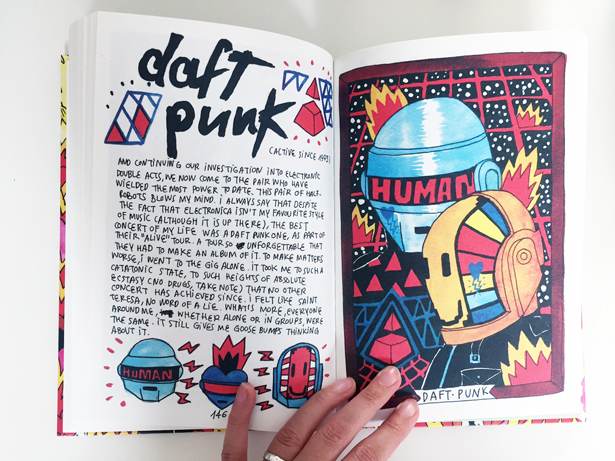 daft
punk
(ACTIVE SINCE 1993)
AND CONTINUING OUR INVESTIGATION INTO ELECTRONIC
DOUBLE ACTS, WE NOW COME TO THE PAIR WHO HAVE
WIELDED THE MOST POWER TO DATE. THIS PAIR OF HALF-
ROBOTS BLOWS MY MIND. I ALWAYS SAY THAT DESPITE
THE FACT THAT ELECTRONICA ISN'T MY FAVOURITE STYLE
OF MUSIC (ALTHOUGH IT IS UP THERE), THE BEST
CONCERT OF MY LIFE WAS A DAFT PUNK ONE, AS PART OF
THEIR "ALIVE" TOUR. A TOUR SO UNFORGETTABLE THAT
THEY HAD TO MAKE AN ALBUM OF IT. TO MAKE MATTERS
WORSE, I WENT TO THE GIG ALONE. IT TOOK ME TO SUCH A
CATATONIC STATE, TO SUCH HEIGHTS OF ABSOLUTE
ECSTASY (NO DRUGS, TAKE NOTE) THAT NO OTHER
CONCERT HAS ACHIEVED SINCE. I FELT LIKE SAINT
TERESA, NO WORD OF A LIE. WHAT'S MORE, EVERYONE
AROUND ME, WHETHER ALONE OR IN GROUPS, WERE
THE SAME. IT STILL GIVES ME GOOSE BUMPS THINKING
ABOUT IT.
HUMAN
146
HUMAN
DAFT-PUNK